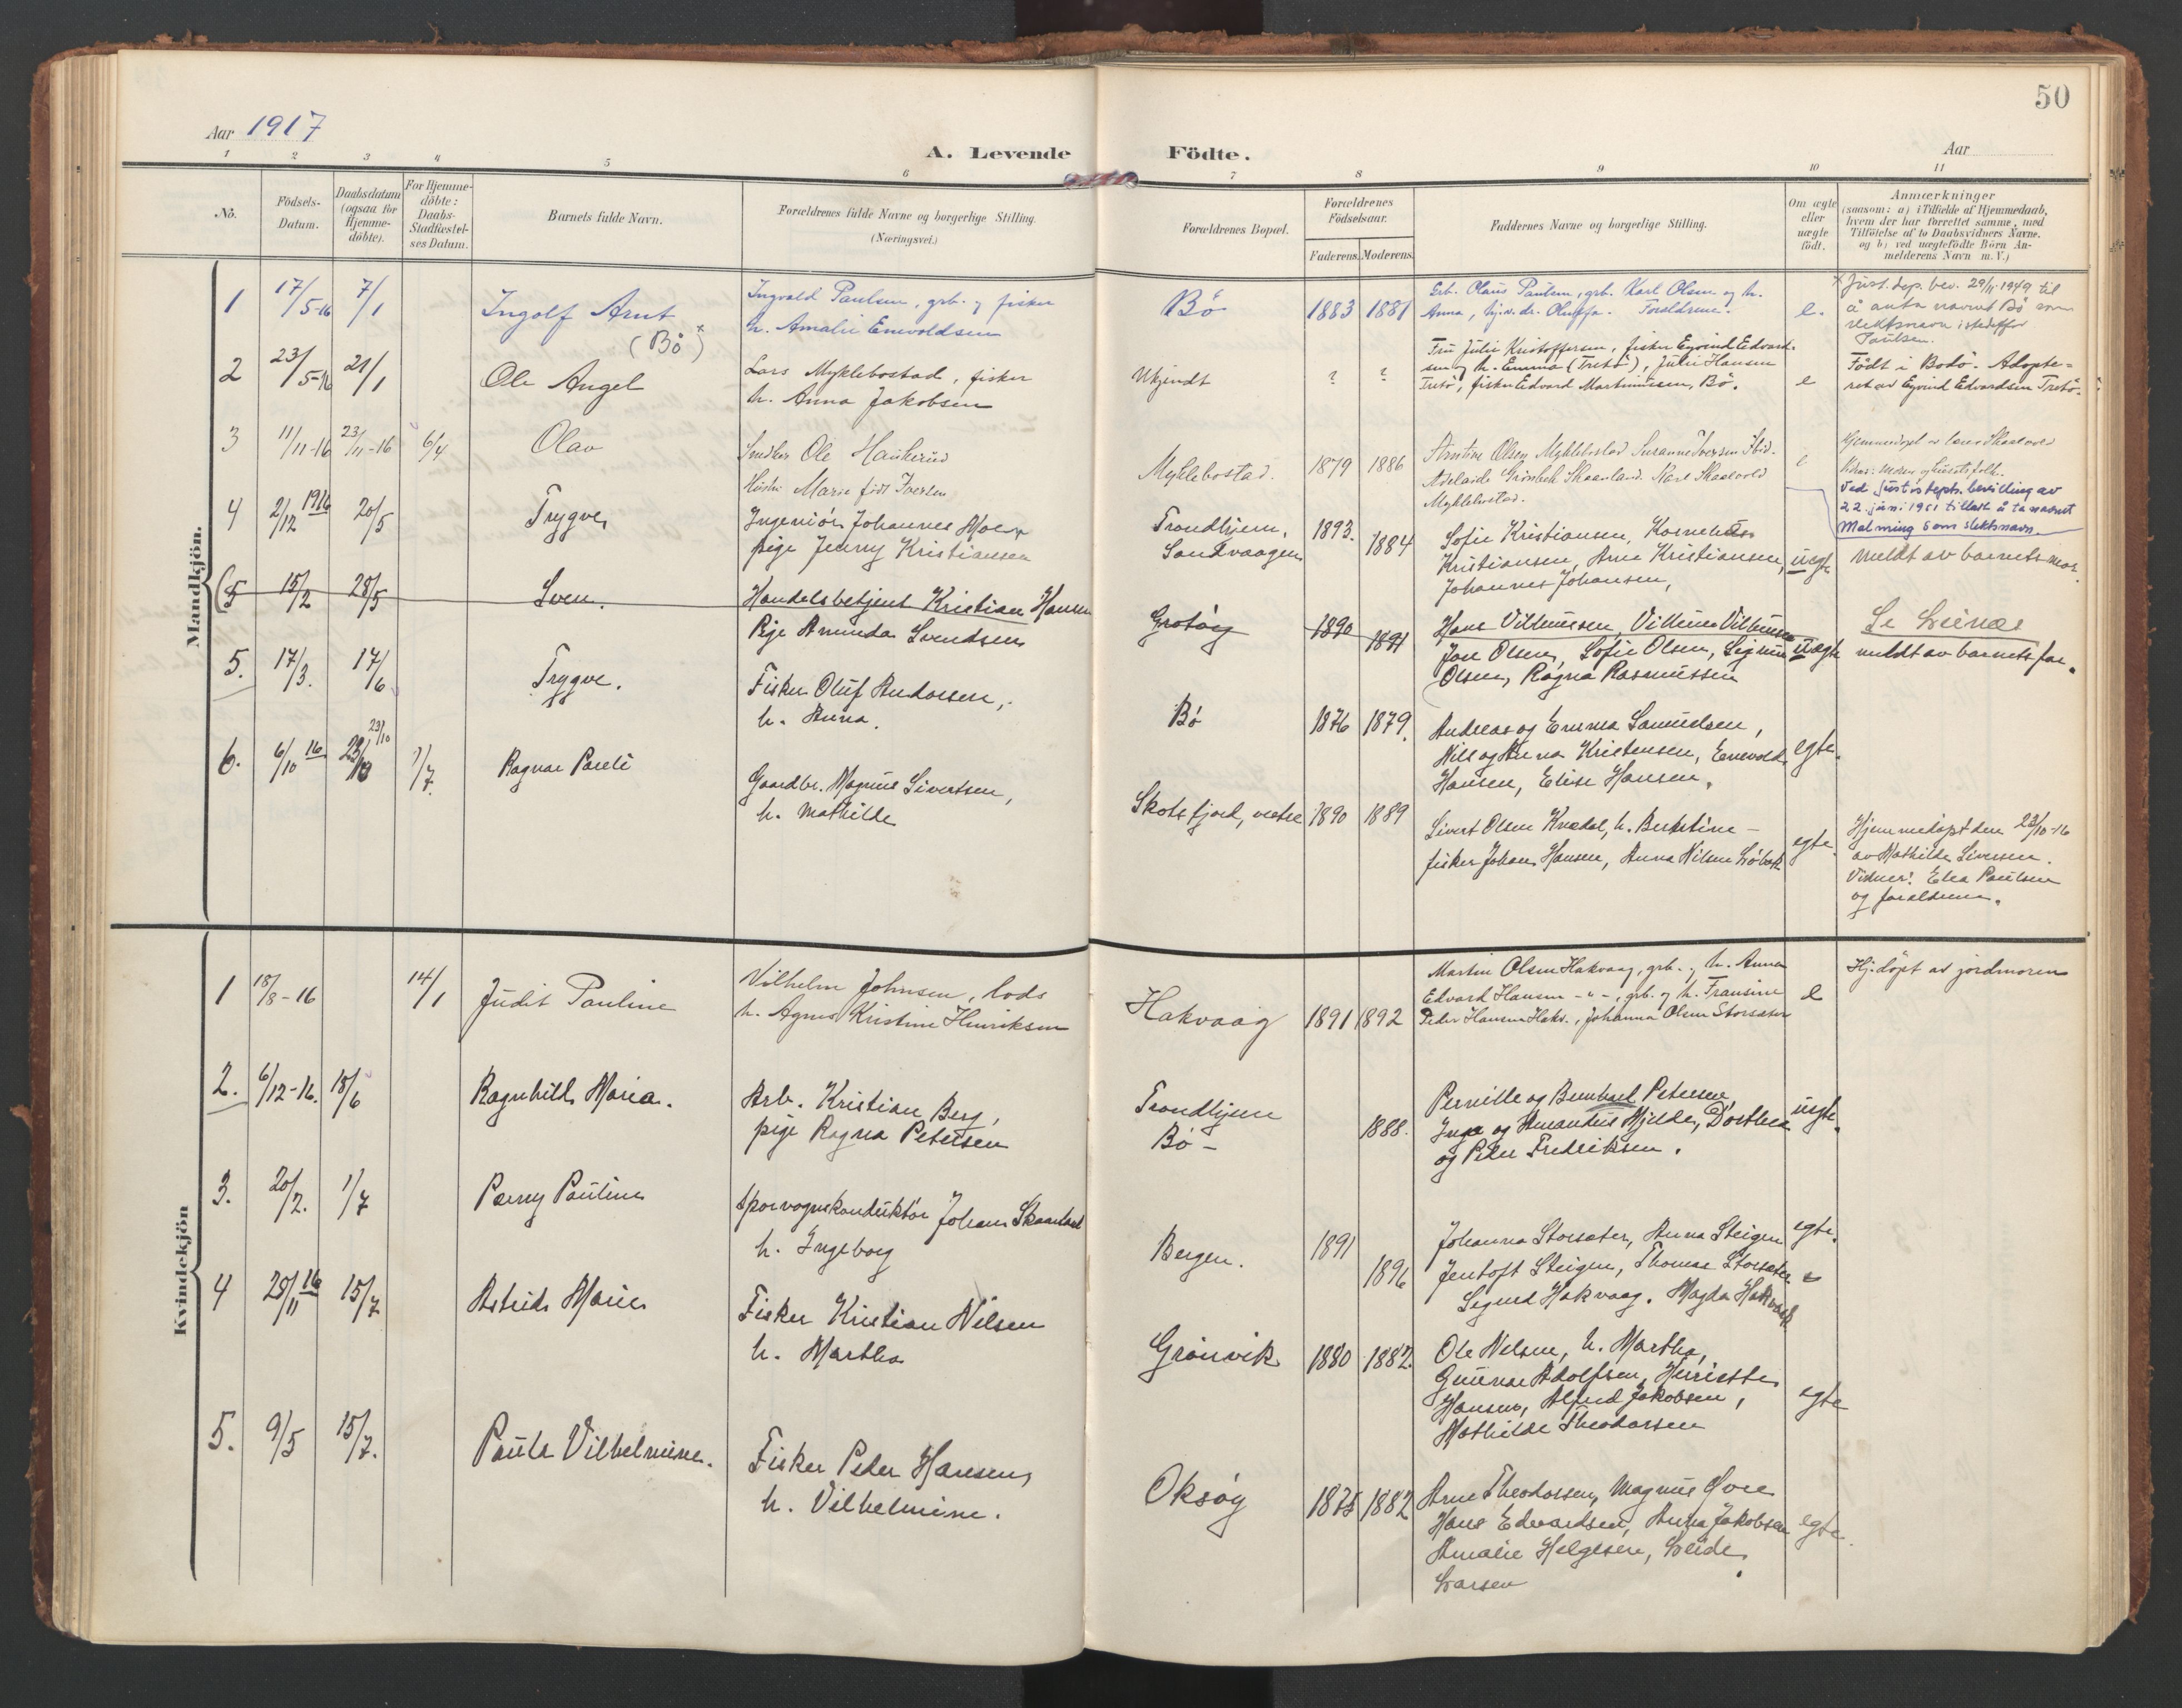 50
Aar 1917
A. Levende Födte.
Aar
1 2 3 4 5 6 7 8 9 10 11
No.
Födsels-
Datum.
Daabsdatum
(ogsaa for
Hjemme-
döbte).
For Hjemme-
döbte:
Daabs-
Stadfæstel-
ses Datum.
Barnets fulde Navn.
Forældrenes fulde Navne og borgerlige Stilling
(Næringsvei.)
Forældrenes Bopæl.
Forældrenes
Födselsaar.
Faderens. Moderens.
Faddernes Navne og borgerlige Stilling.
Om ægte
eller
uægte
födt.
Anmærkninger
(saasom: a) i Tilfælde af Hjemmedaab,
hvem der har forrettet samme, med
Tilföielse af to Daabsvidners Navne.
og b) ved uægtefödte Börn An-
melderens Navn m. V.)
Mandkjön.
1 17/5-16 7/1 Ingolf Arnt
(Bö*)
Ingvald Paulsen, grb. og fisker
h. Amalie Enevoldsen
Bö 1883 1881
Grb. Olaus Paulsen, grb. Karl Olsen og h.
Anna, Foreldrene.
e.
* Just. dep. bev. 29/11-1949 til
å anta navnet Bö som
slektsnavn istedetfor
Paulsen.
2 23/5-16 21/1 Ole Angel
Lars Myklebostad, fisker
h. Anna Jakobsen
Ukjendt ? ?
Fru Julie Kristoffersen, fisker Eyvind Edvard-
sen og h. Emma (Tretö), Julie Hansen
Tretö, fisker Edvard Martinussen, Bö.
e
Födt i Bodö. Adopte-
ret av Eyvind Edvardsen Tretö.
3 11/11-16 23/11-16 6/4 Olav
Ole Haukerud
Hustru Marie födt Iversen
Myklebostad. 1879 1886
Olsen Myklebostad Susanne Iversen Ibid.
Adelaide Grönbek Skaanland. Karl Skaalvold
Myklebostad.
e
Hjemmedøpt av Skaalvold
Ved Justisdepts. bevilling av
22. juni 1951 tillatt å ta navnet
Malming som slektsnavn.
4 2/12 1916 20/5 Trygve
Ingeniör Johannes Moe
pige Jenny Kristiansen
Trondhjem, 1893.
Sandvaagen 1884
Sofie Kristiansen, Kornelius
Kristiansen, Arne Kristiansen,
Johannes Johansen,
uegte
meldt av barnets mor.
(5 15/2 28/5 Sven.
Handelsbetjent Kristian Hansen
Pige Amunda Svendsen
Grotöy 1890 1891
Hans Vilhumsen, Vilhumsen
Olsen, Sofie Olsen, Sigrun
Olsen, Ragna Rasmussen
uegte
meldt av barnets far.
5. 17/3. 17/6 Trygve.
Fisker Oluf Andorsen,
h. Anna.
Bö 1876 1879.
Andreas og Emma Samuelsen,
Nils og Anna Kristensen, Enevold
Hansen, Elise Hansen.
egte.
6. 6/10 16 23/10 1/7. Ragnar Pareli
Gaardbr. Magnus Sivertsen,
h. Mathilde
Skotsfjord, vestre 1890 1889
Sivert Olsen Kvedal, h. Berntine –
fisker Johan Hansen, Anna Nilsen
egte.
Hjemmedöpt den 23/10-16
av Mathilde Siversen.
Vidner: Elea Paulsen
og foreldrene.
Kvindekjön
1 18/8-16 14/1 Judit Pauline
Vilhelm Johnsen, lods
h. Agnes Kristine Hinriksen
Hakvaag 1891 1892
Martin Olsen Hakvaag, grb. og h. Anna
Edvard Hansen -"-, grb. og h. Fransine
Peder Hansen Hakv., Johanna Olsen Storsæter
e
Hj. döpt av jordmoren
2. 6/12-16. 18/6 Ragnhild Maria.
Arb. Kristian Berg,
pige Ragna Petersen
Trondhjem
Bö – 1888.
Pernille og Bernhard Petersen,
Inga og Amandus Hjelde, Dorthea
og Peder Fredriksen.
uegte.
3. 20/2. 1/7 Pauline
Sporvognskonduktör Johan Skaanland
h. Ingeborg
Bergen. 1891 1896
Johanna Storsæter, Anna Steigen
Jentoft Steigen, Thomas Storsæter
Sigurd Hakvaag. Magda Hakvaag
egte.
4 28/11 16 15/7 Astrid Marie
Fisker Kristian Nilsen
h. Martha
Grönvik 1880 1882.
Ole Nilsen, h. Martha,
Gunnar Adolfsen, Henriette
Hansen, Alfred Jakobsen,
Mathilde Theodorsen
egte
5. 9/5 15/7. Paula Vilhelmine.
Fisker Peder Hansen,
h. Vilhelmine.
Oksöy 1875 1882
Arne Theodorsen, Magnus
Hans Edvardsen, Anna Jakobsen
Amalie Helgesen,
Larsen
egte.